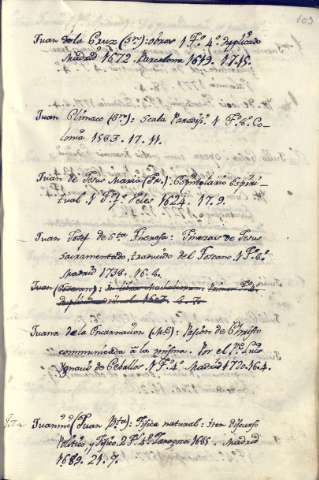 103
Juan de la Cruz (Sn.): obras 1 Fo. 4o. duplicado
Madrid 1672. Barcelona 1619. 17.15.
Juan Climaco (Sn.): Scala Paradysi. 1 Fo. 8o. Co-
lonia 1583. 17. 11.
Juan de Jesus Maria (Fr.): Epistolario Espiri-
tual. 1 Fo. Ucles 1624. 17. 9.
Juan Josef de Sta. Theresa: Finezas de Jesus
Sacramentado, traducido del Toscano. 1 Fo. 8o.
Madrid 1738. 16. 6.
Juan
Juana de la Encarnacion (M.e): Pasion de Christo
communicada à la misma. Por el Pe. Luis
Ignacio de Ceballos. 1 Fo. 4o. Madrid 1720. 16.4.
(Juan Bta.): Fisica natural: iten Discurso
Politico, y Fisico. 2 Fo. 4o. Zaragoza 1685. Madrid
1689. 21. 7.